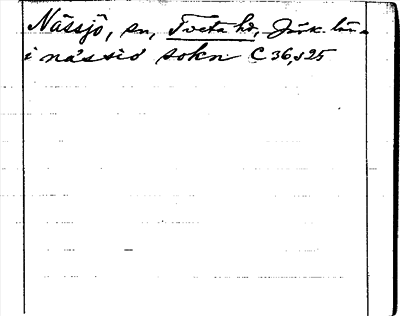 Nässjö, sn, Tveta hd, Jönk. län.
i nässiö sokn C 36, s 25